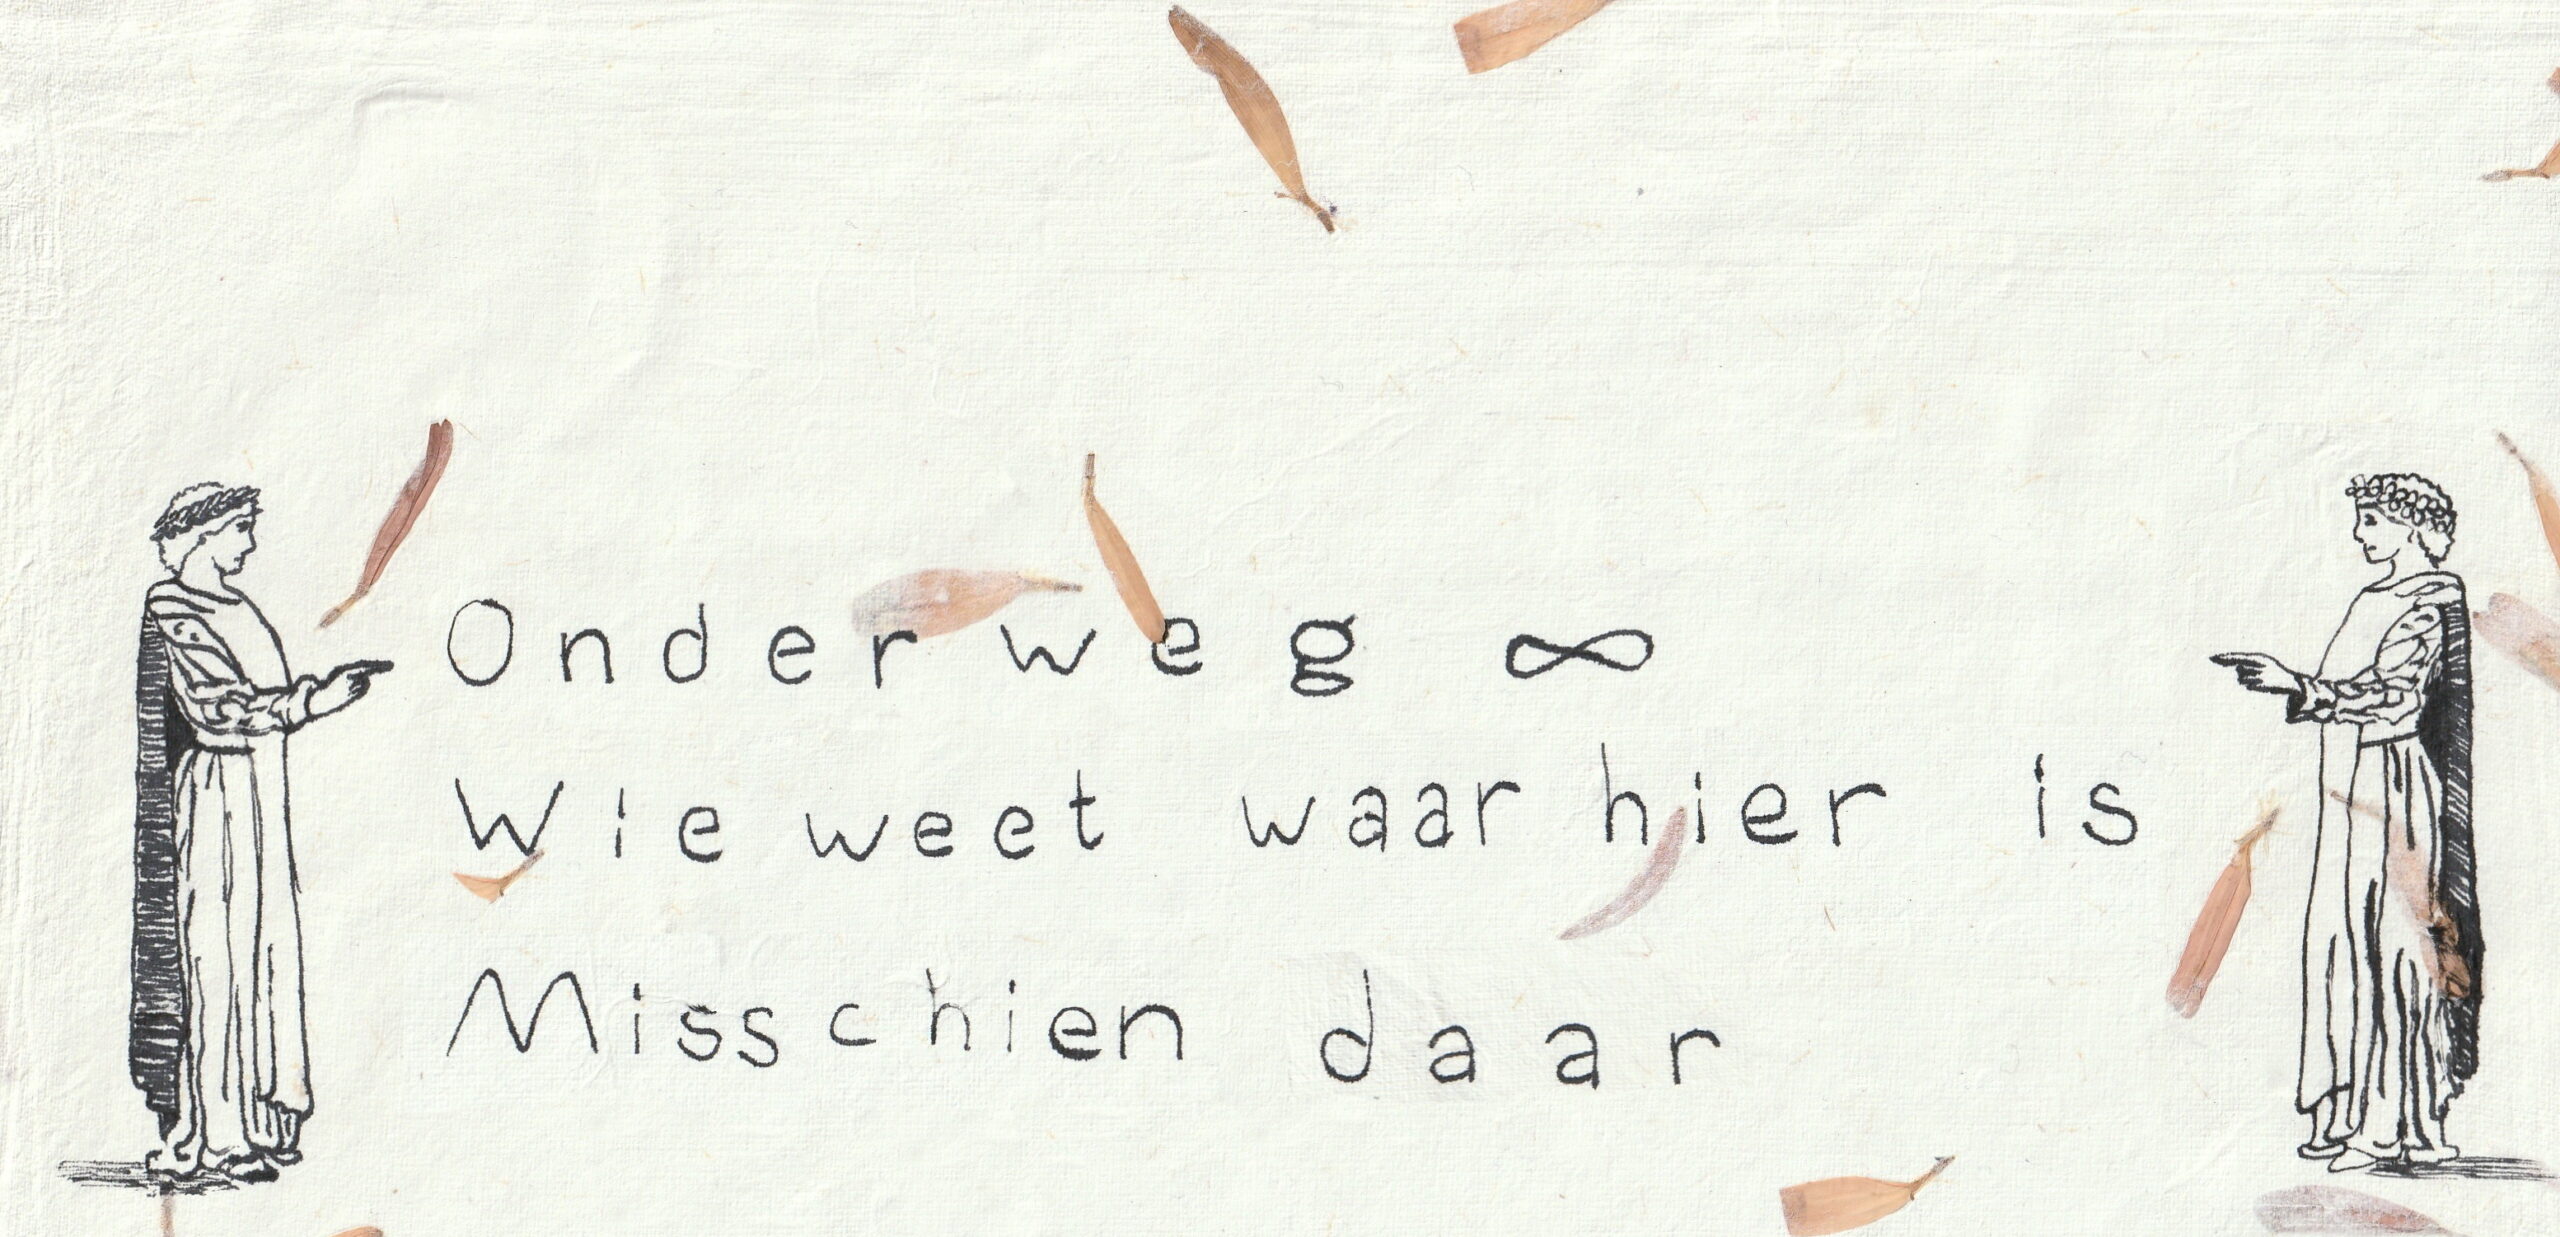 Onderweg ∞
Wie weet waar hier is
Misschien daar